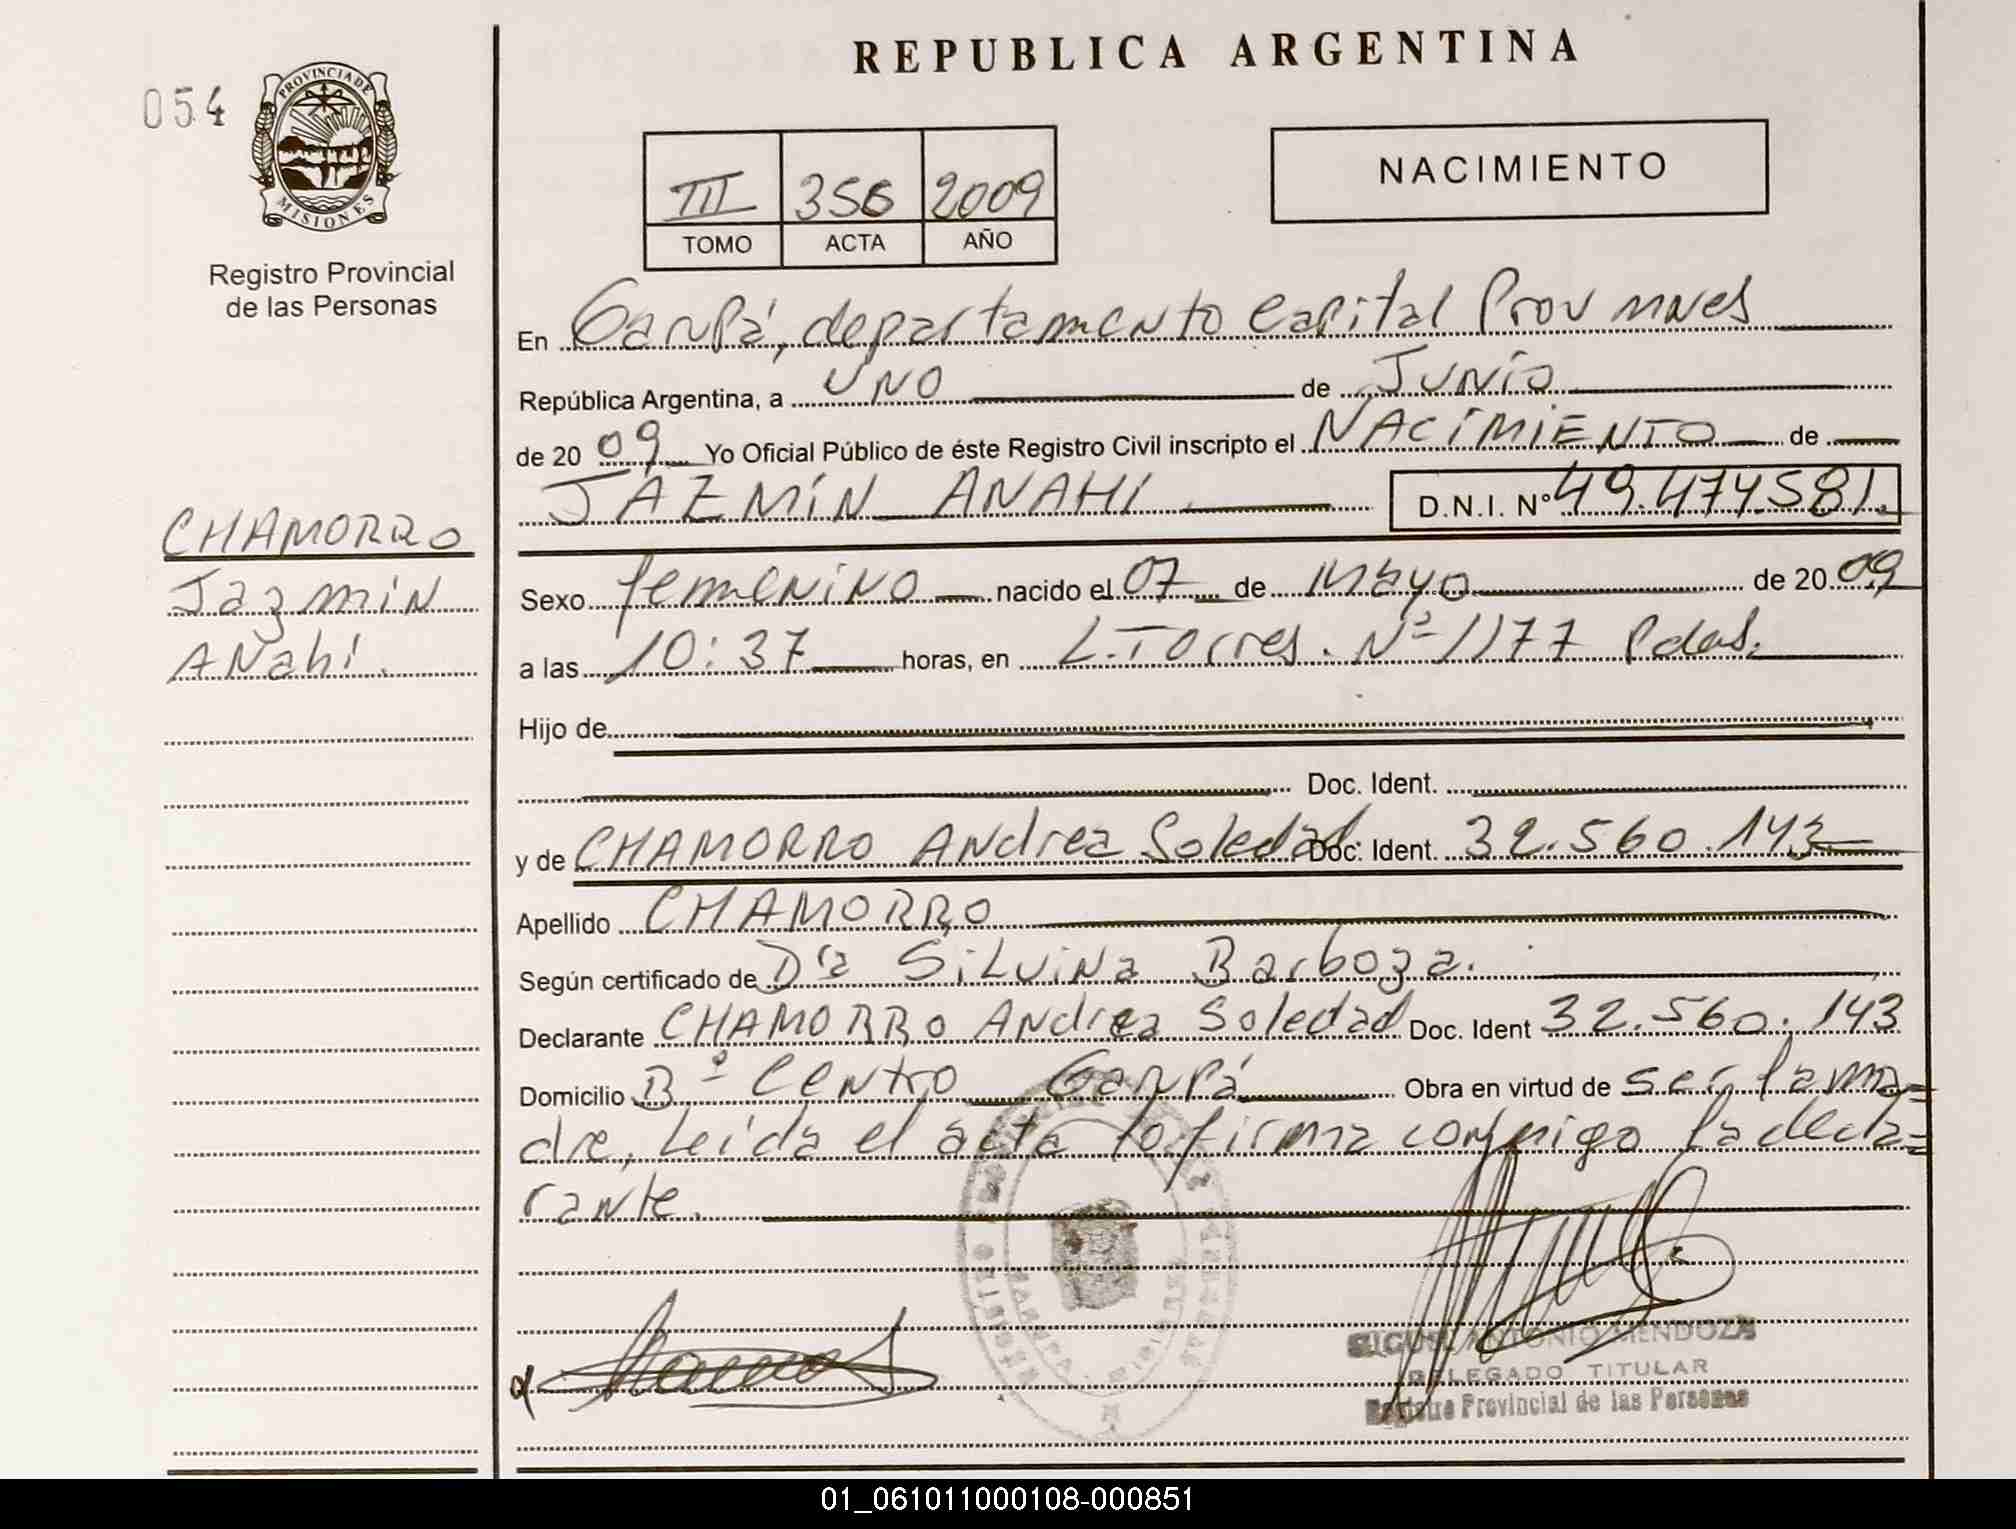 REPUBLICA ARGENTINA
054
PROVINCIA DE
MISIONES
Registro Provincial
de las Personas
III 356 2009
TOMO ACTA AÑO
NACIMIENTO
En Garupá, departamento Capital Prov mnes
República Argentina, a UNO de Junio
de 20 09 Yo Oficial Público de éste Registro Civil inscripto el NACIMIENTO de
JAZMIN ANAHI D.N.I. Nº 49.474.581.
CHAMORRO
Jazmin
Anahi.
Sexo femenino nacido el 07 de Mayo de 20 09
a las 10:37 horas, en L. Torres. Nº 1177 Pdas.
Hijo de
Doc. Ident.
y de CHAMORRO Andrea Soledad Doc. Ident. 32.560.143
Apellido CHAMORRO
Según certificado de Dra Silvina Barboza.
Declarante CHAMORRO Andrea Soledad Doc. Ident 32.560.143
Domicilio Bº Centro Garupá Obra en virtud de ser la ma=
dre, Leida el acta lo firma conmigo la decla=
rante.
ANTONIO MENDOZA
DELEGADO TITULAR
Registro Provincial de las Personas
01_061011000108-000851